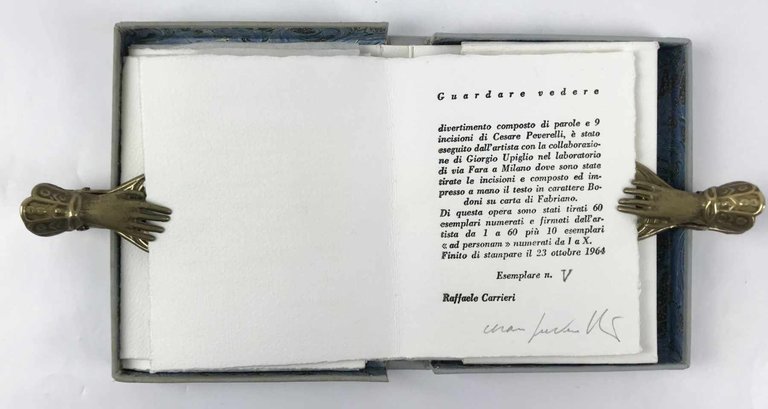 Guardare vedere
divertimento composto di parole e 9
incisioni di Cesare Peverelli, è stato
eseguito dall'artista con la collaborazio-
ne di Giorgio Upiglio nel laboratorio
di via Fara a Milano dove sono state
tirate le incisioni e composto ed im-
presso a mano il testo in carattere Bo-
doni su carta di Fabriano.
Di questa opera sono stati tirati 60
esemplari numerati e firmati dall'ar-
tista da 1 a 60 più 10 esemplari
« ad personam » numerati da I a X.
Finito di stampare il 23 ottobre 1964
Esemplare n. V
Raffaele Carrieri